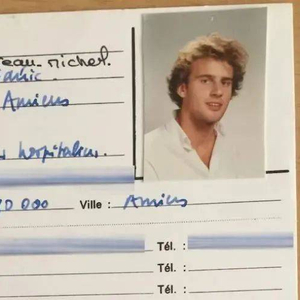 Jean-Michel.
Amiens
hospitalier.
0 000 Ville : Amiens
Tél. :
Tél. :
Tél. :